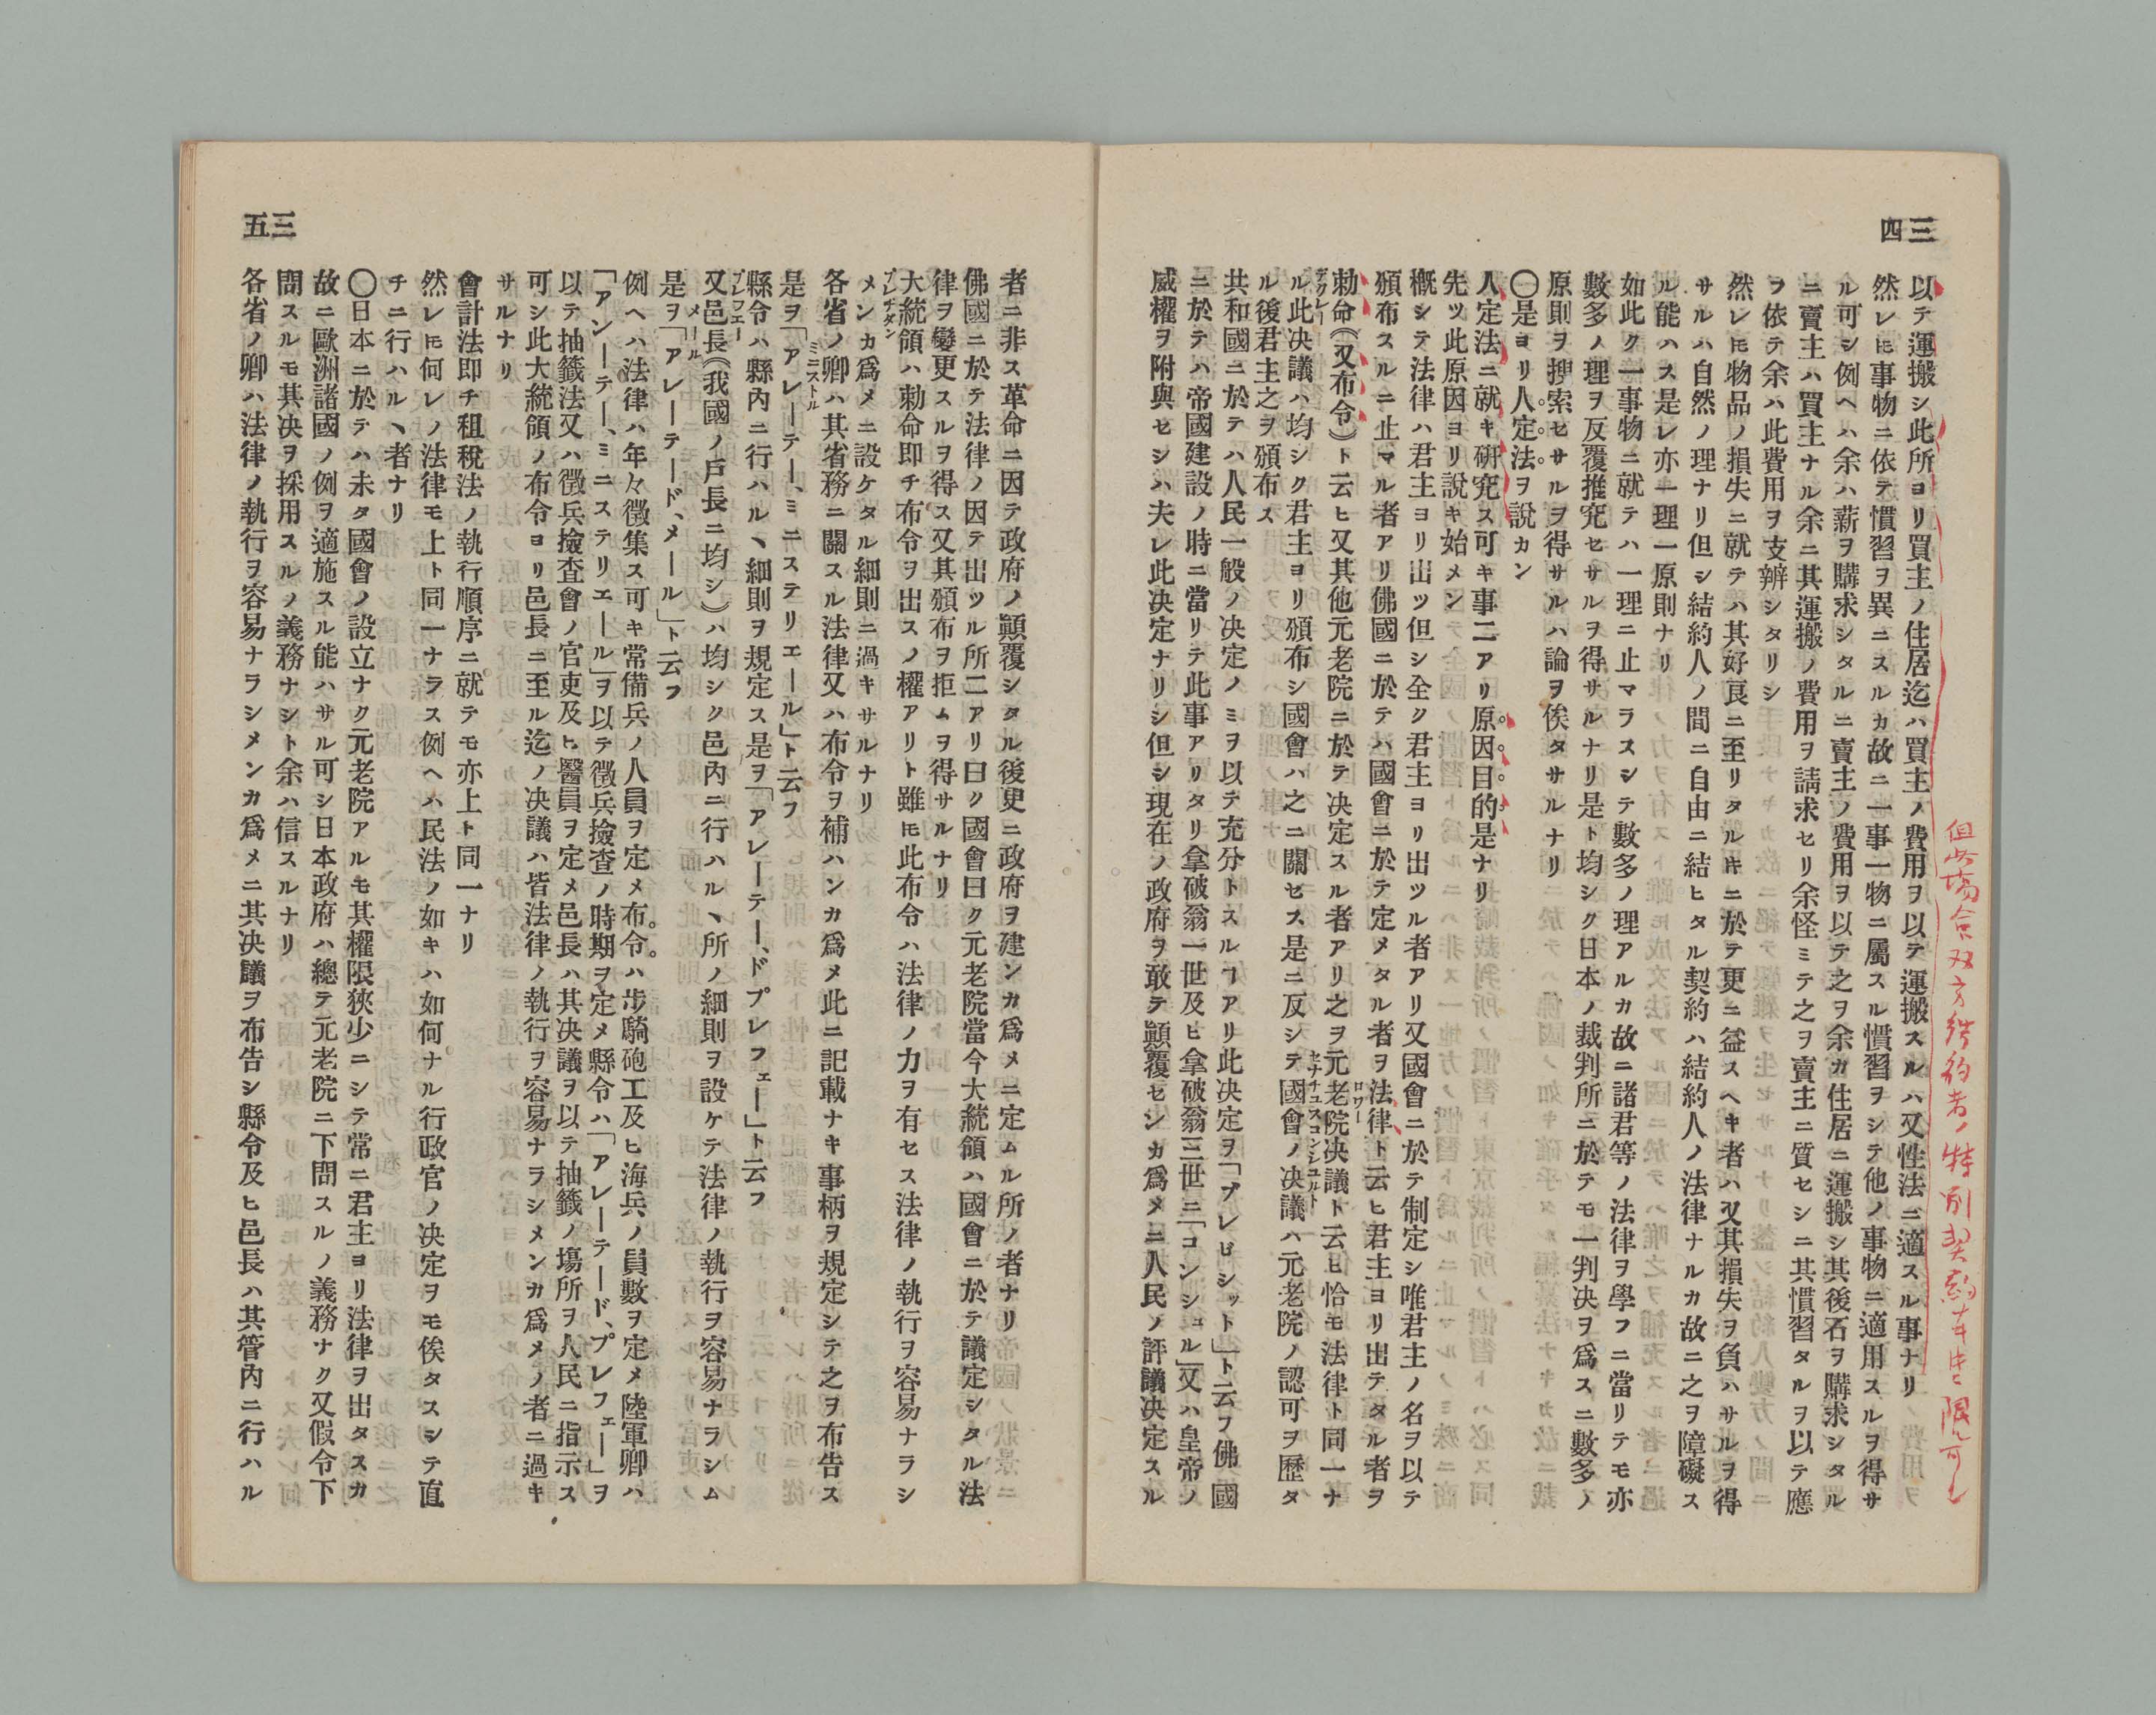 三四
但此場合双方結約者ノ特別契約ナキニ限ル可シ
以テ運搬シ此所ヨリ買主ノ住居迄ハ買主ノ費用ヲ以テ運搬スルハ又性法ニ適スル事ナリ
然レ𪜈事物ニ依テ慣習ヲ異ニスルカ故ニ一事一物ニ屬スル慣習ヲシテ他ノ事物ニ適用スルヲ得サ
ル可シ例ヘハ余ハ薪ヲ購求シタルニ賣主ノ費用ヲ以テ之ヲ余カ住居ニ運搬シ其後石ヲ購求シタル
ニ賣主ハ買主ナル余ニ其運搬ノ費用ヲ請求セリ余怪ミテ之ヲ賣主ニ質セシニ其慣習タルヲ以テ應
ヲ依テ余ハ此費用ヲ支辨シタリシ
然レ𪜈物品ノ損失ニ就テハ其好良ニ至リタルキニ於テ更ニ益スヘキ者ハ又其損失ヲ負ハサルヲ得
サルハ自然ノ理ナリ但シ結約人ノ間ニ自由ニ結ヒタル契約ハ結約人ノ法律ナルカ故ニ之ヲ障礙ス
ル能ハス是レ亦一理一原則ナリ
如此ク一事物ニ就テハ一理ニ止マラスシテ數多ノ理アルカ故ニ諸君等ノ法律ヲ學フニ當リテモ亦
數多ノ理ヲ反覆推究セサルヲ得サルナリ是ト均シク日本ノ裁判所ニ於テモ一判决ヲ爲スニ數多ノ
原則ヲ搜索セサルヲ得サルハ論ヲ俟タサルナリ
〇是ヨリ人定法ヲ說カン
人定法ニ就キ硏究ス可キ事二アリ原因目的是ナリ
先ツ此原因ヨリ說キ始メン
槪シテ法律ハ君主ヨリ出ツ但シ全ク君主ヨリ出ツル者アリ又國會ニ於テ制定シ唯君主ノ名ヲ以テ
頒布スルニ止マル者アリ佛國ニ於テハ國會ニ於テ定メタル者ヲ法律ト云ヒ君主ヨリ出テタル者ヲ
勅命(又布令)ト云ヒ又其他元老院ニ於テ决定スル者アリ之ヲ元老院决議ト云ヒ恰モ法律ト同一ナ
ル此决議ハ均シク君主ヨリ頒布シ國會ハ之ニ關セス是ニ反シテ國會ノ决議ハ元老院ノ認可ヲ歷タ
ル後君主之ヲ頒布ス
共和國ニ於テハ人民一般ノ决定ノミヲ以テ充分トスルヿアリ此决定ヲ「プレビシット」ト云フ佛國
ニ於テハ帝國建設ノ時ニ當リテ此事アリタリ拿破翁一世及ヒ拿破翁三世ニ「コンシュル」又ハ皇帝ノ
威權ヲ附與セシハ夫レ此决定ナリシ但シ現在ノ政府ヲ敢テ顚覆センカ爲メニ人民ノ評議决定スル
三五
者ニ非ス革命ニ因テ政府ノ顚覆シタル後更ニ政府ヲ建ンカ爲メニ定ムル所ノ者ナリ
佛國ニ於テ法律ノ因テ出ツル所二アリ曰ク國會曰ク元老院當今大統領ハ國會ニ於テ議定シタル法
律ヲ變更スルヲ得ス又其頒布ヲ拒ムヲ得サルナリ
大統領ハ勅命即チ布令ヲ出スノ權アリト雖𪜈此布令ハ法律ノ力ヲ有セス法律ノ執行ヲ容易ナラシ
メンカ爲メニ設ケタル細則ニ過キサルナリ
各省ノ卿ハ其省務ニ關スル法律又ハ布令ヲ補ハンカ爲メ此ニ記載ナキ事柄ヲ規定シテ之ヲ布告ス
是ヲ「アレーテー、ミニステリエール」ト云フ
縣令ハ縣內ニ行ハルヽ細則ヲ規定ス是ヲ「アレーテー、ドプレフェー」ト云フ
又邑長(我國ノ戶長ニ均シ)ハ均シク邑內ニ行ハルヽ所ノ細則ヲ設ケテ法律ノ執行ヲ容易ナラシム
是ヲ「アレーテード、メール」ト云フ
例ヘハ法律ハ年々徵集ス可キ常備兵ノ人員ヲ定メ布令ハ步騎砲工及ヒ海兵ノ員數ヲ定メ陸軍卿ハ
「アンーテー、ミニステリエール」ヲ以テ徵兵撿査ノ時期ヲ定メ縣令ハ「アレーテード、プレフェー」ヲ
以テ抽籤法又ハ徵兵撿査會ノ官吏及ヒ醫員ヲ定メ邑長ハ其决議ヲ以テ抽籤ノ塲所ヲ人民ニ指示ス
可シ此大統領ノ布令ヨリ邑長ニ至ル迄ノ决議ハ皆法律ノ執行ヲ容易ナラシメンカ爲メノ者ニ過キ
サルナリ
會計法即チ租稅法ノ執行順序ニ就テモ亦上ト同一ナリ
然レ𪜈何レノ法律モ上ト同一ナラス例ヘハ民法ノ如キハ如何ナル行政官ノ决定ヲモ俟タスシテ直
チニ行ハルヽ者ナリ
〇日本ニ於テハ未タ國會ノ設立ナク元老院アルモ其權限狹少ニシテ常ニ君主ヨリ法律ヲ出タスカ
故ニ歐洲諸國ノ例ヲ適施スル能ハサル可シ日本政府ハ總テ元老院ニ下問スルノ義務ナク又假令下
問スルモ其决ヲ採用スルノ義務ナシト余ハ信スルナリ
各省ノ卿ハ法律ノ執行ヲ容易ナラシメンカ爲メニ其决議ヲ布告シ縣令及ヒ邑長ハ其管內ニ行ハル